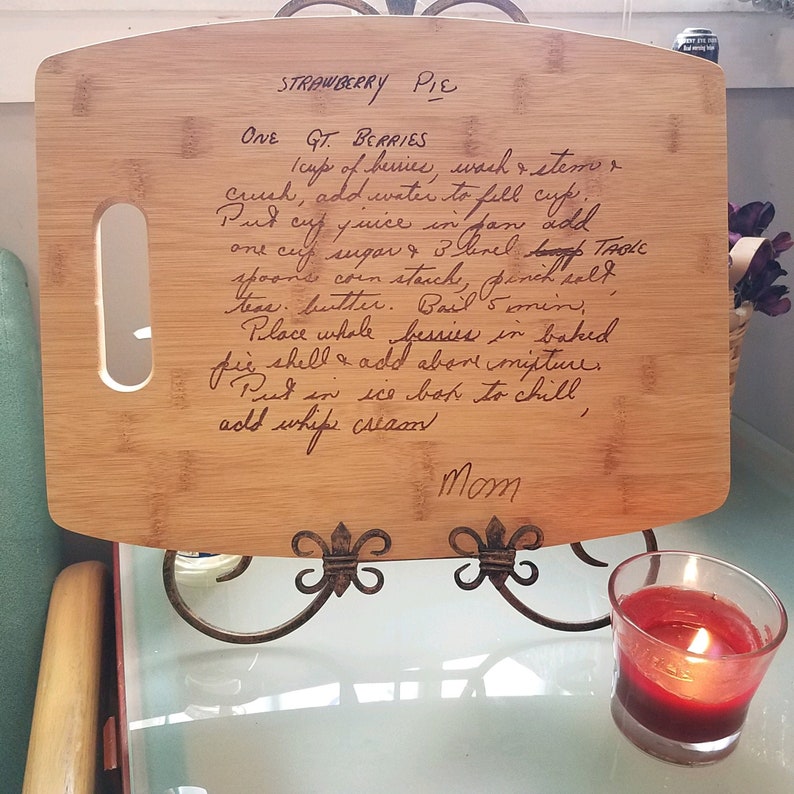 STRAWBERRY PIE
ONE QT. BERRIES
1 cup of berries, wash & stem &
crush, add water to fill cup.
Put cup juice in pan add
one cup sugar & 3 level TABLE
spoons corn starch, pinch salt,
teas. butter. Boil 5 min.
Place whole berries in baked
pie shell & add above mixture.
Put in ice box to chill,
add whip cream
Mom